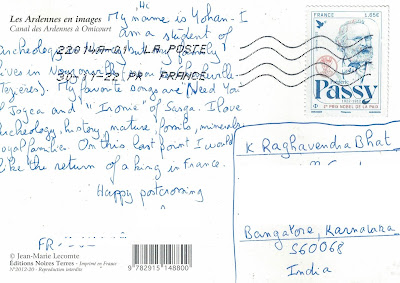 Les Ardennes en images
Canal des Ardennes à Omicourt
Hi
My name is Yohan. I
am a student of
archeology
family
lives in
My favorite songs are "Need Ya"
of Jogca and "Isonie" of Sarga. I love
archeology, history, nature, minerals
royal families. On this last point I would
like the return of a king in France.
Happy postcrossing
FR-
22014A-01 LA POSTE
30-11-22 PR FRANCE
FRANCE
1,65€
Frédéric
Passy
1822-1912
1er PRIX NOBEL DE LA PAIX
K RaghavendraBhat
Bangalore, Karnataka
560068
India
© Jean-Marie Lecomte
Éditions Noires Terres - Imprimé en France
N°2012-20 - Reproduction interdite
9782915148800